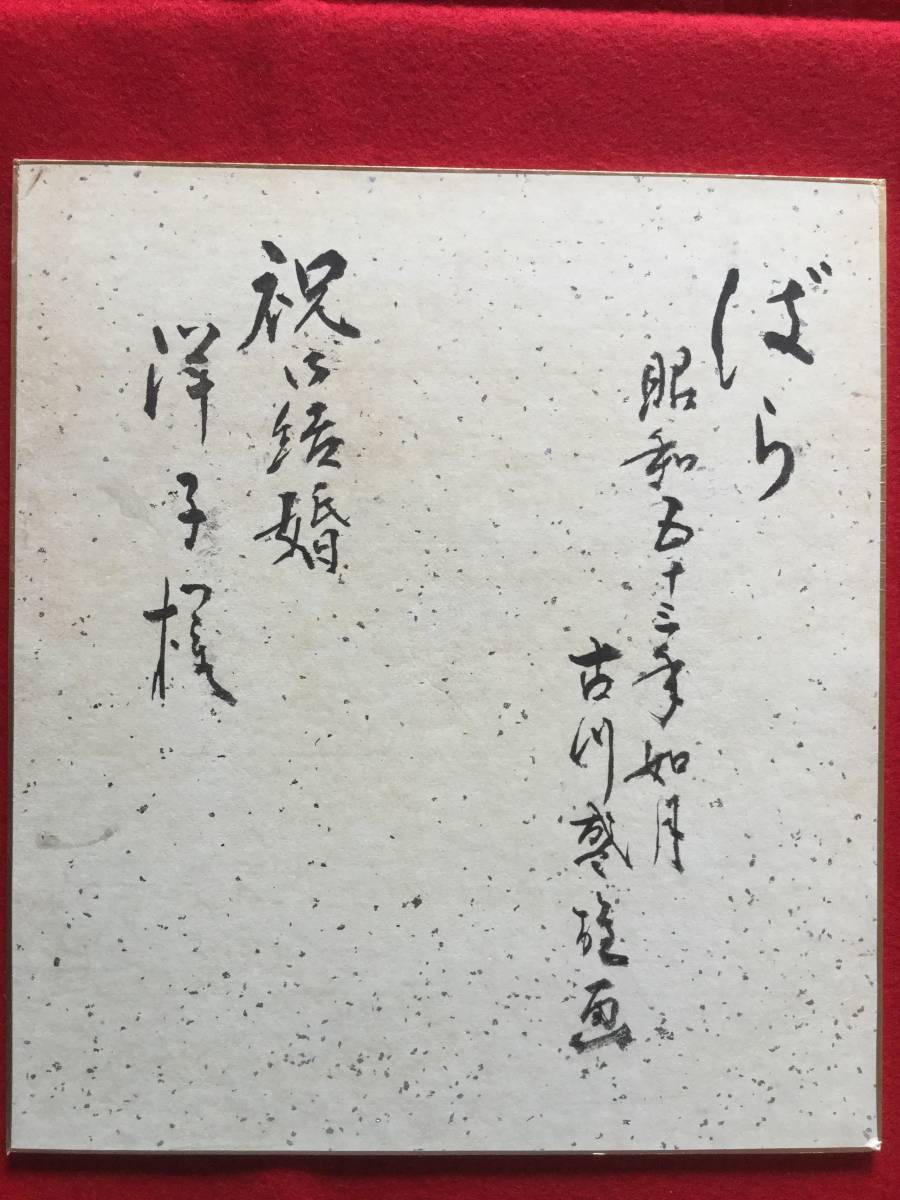 ばら
昭和五十三年如月
古川盛雄画
祝御結婚
洋子様